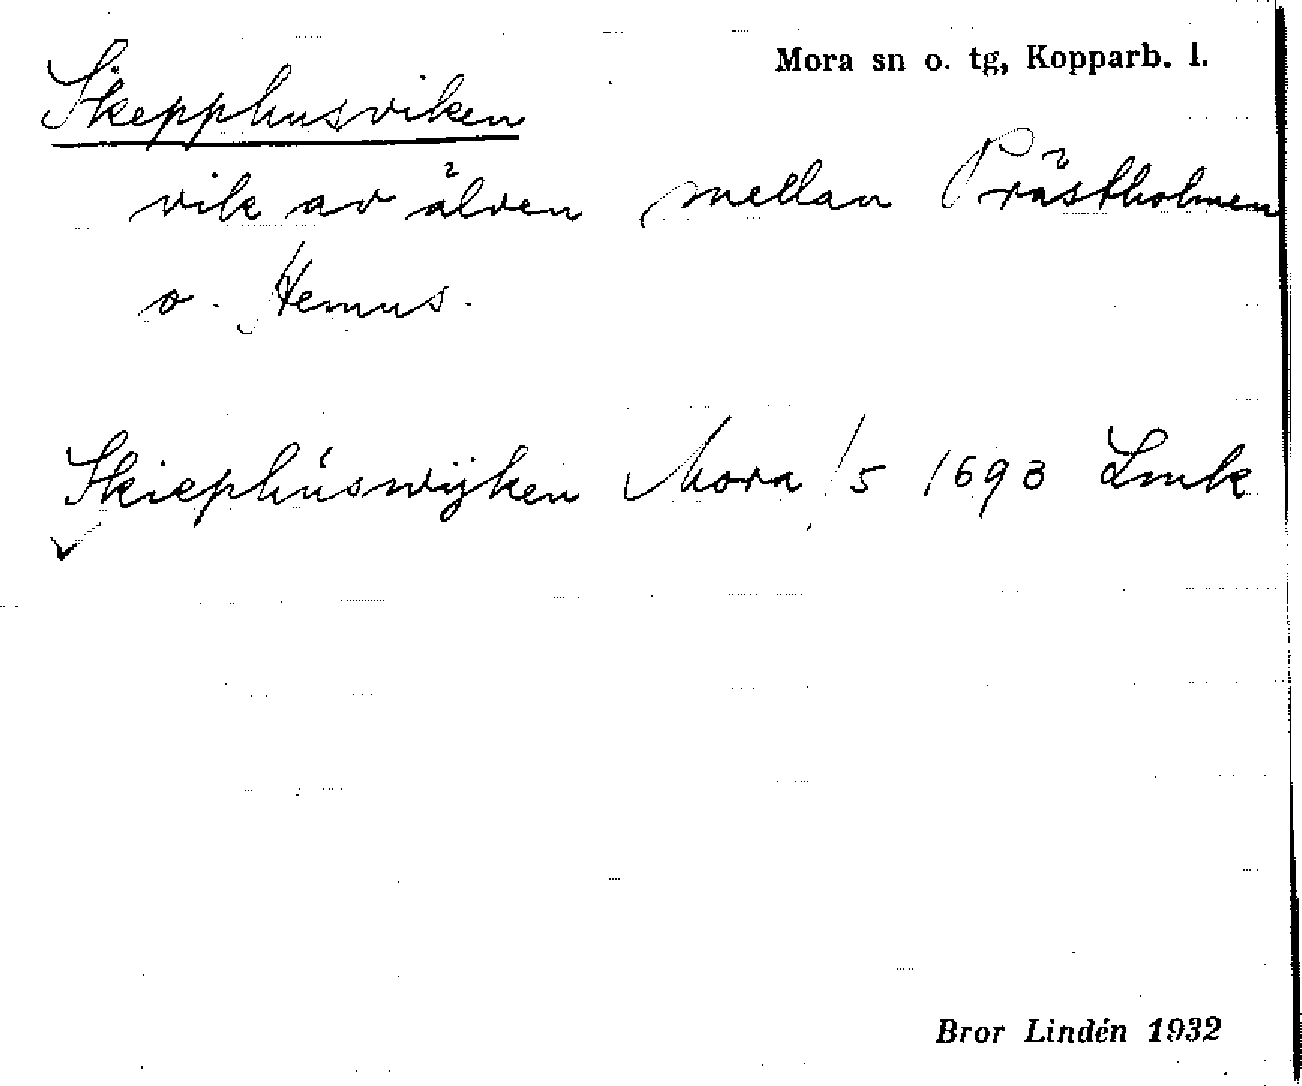 Mora sn o. tg, Kopparb. l.
Skepphusviken
vik av älven mellan Prästholmen
o. Hemus.
Skiephúswijken Mora 1/5 1693 Lmk
Bror Lindén 1932